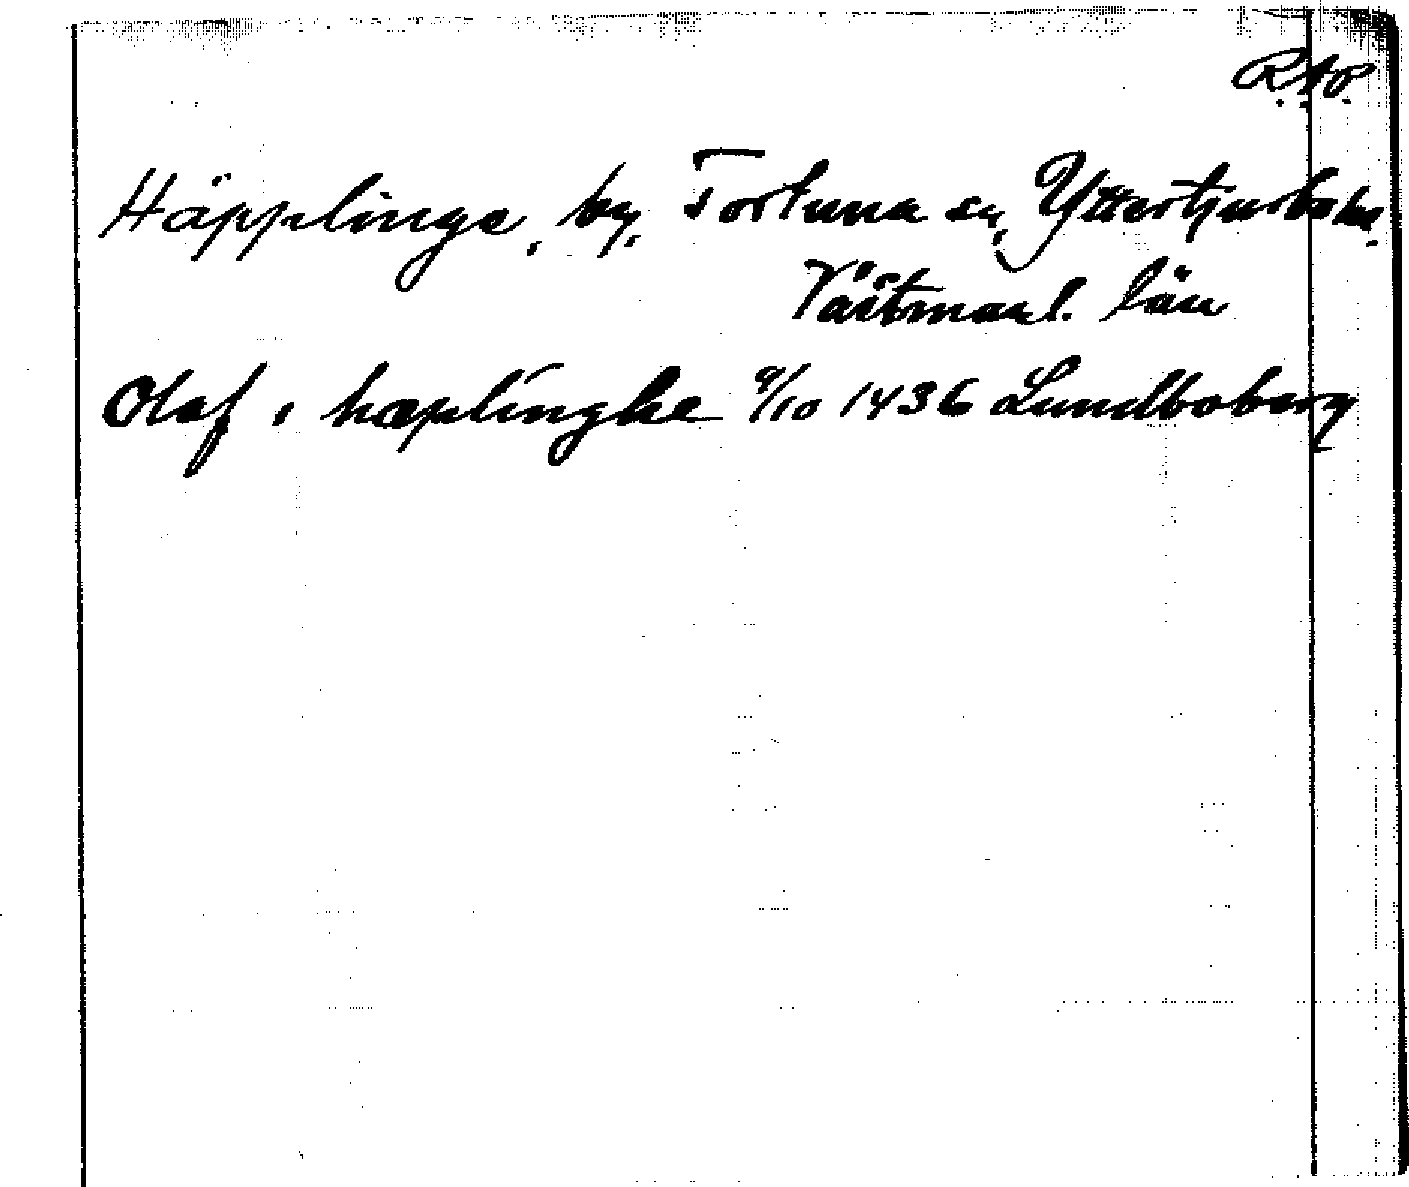 R.A.P.
Häpplinge, by, Tortuna sn, Yttertjurbo hd.
Västmanl. län
Olaf i hæplinghe 9/10 1436 Lundboberg